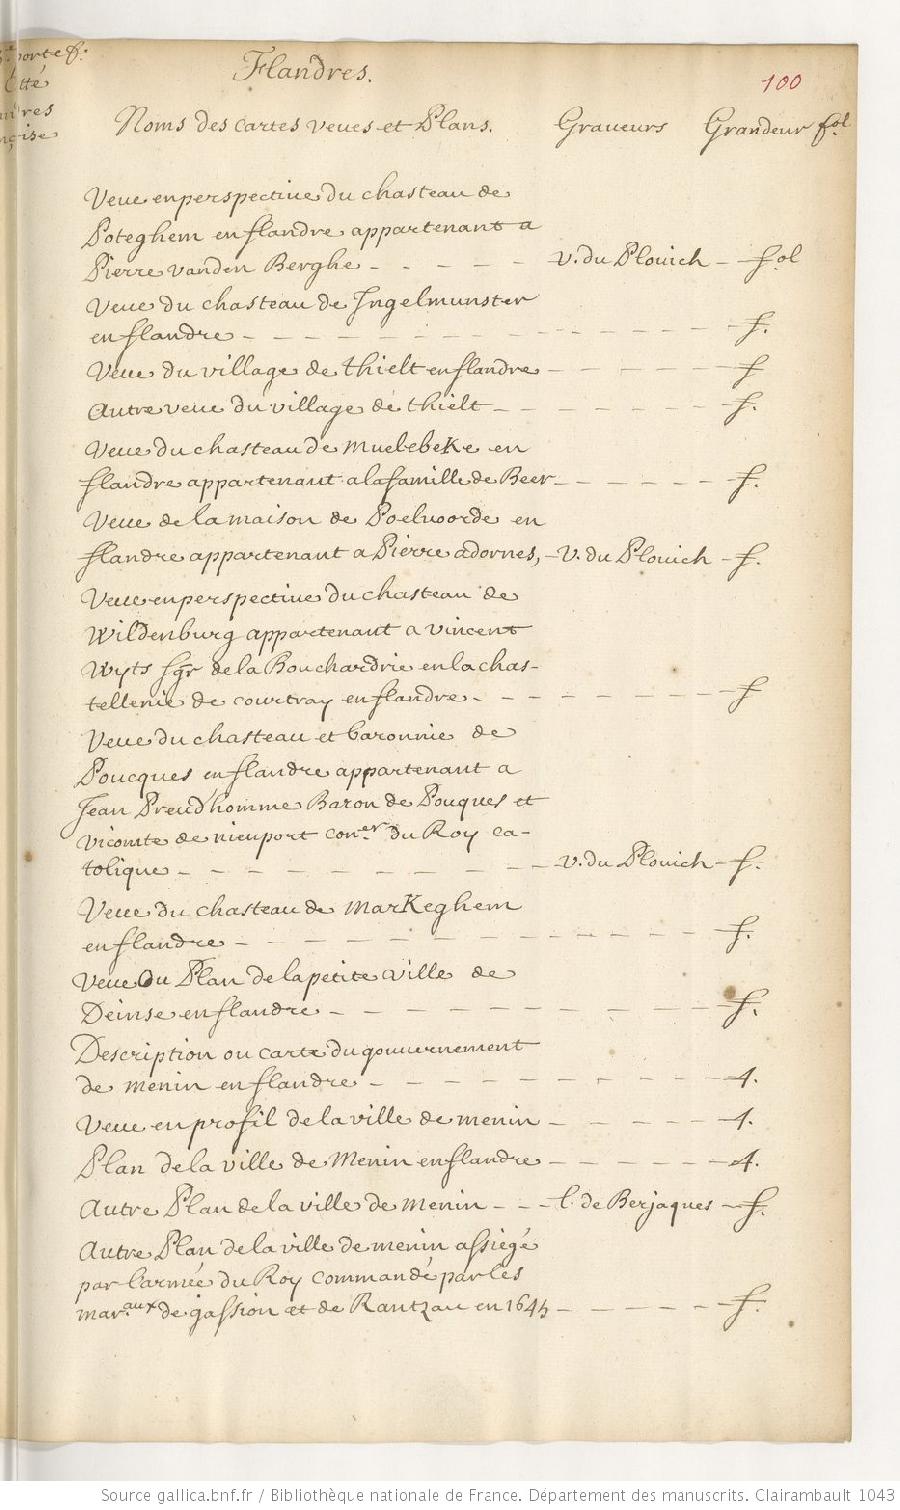 porte f.
Flandres.
100
Noms des cartes veues et Plans. Graveurs Grandeur fol
Veue en perspective du chasteau de
Poteghem en flandre appartenant a
Pierre vanden Berghe - - - - - v. du Plouich - fol
Veue du chasteau de Ingelmunster
en flandre - - - - - - - - - - - - f.
Veue du village de thielt en flandre - - - - - f
Autre veue du village de thielt - - - - - - f.
Veue du chasteau de Muelebeke en
flandre appartenant a la famille de Beer - - - - - f.
Veue de la maison de Poelvoorde en
flandre appartenant a Pierre adornes, - v. du Plouich - f.
Veue en perspective du chasteau de
Wildenburg appartenant a vincent
Wyts sgr de la Bouchardrie en la chas-
tellenie de courtray en flandre - - - - - - - f
Veue du chasteau et baronnie de
Poucques en flandre appartenant a
Jean Preud'homme Baron de Pouques et
vicomte de nieuport con.er du Roy ca-
tolique - - - - - - - - - v. du Plouich - f.
Veue du chasteau de Markeghem
en flandre - - - - - - - - - - - - f.
Veue ou Plan de la petite ville de
Deinse en flandre - - - - - - - - - - f.
Description ou carte du gouvernement
de menin en flandre - - - - - - - - - 4.
Veue en profil de la ville de menin - - - - - 4.
Plan de la ville de Menin en flandre - - - - - 4.
Autre Plan de la ville de Menin - - - l. de Berjaques - f.
Autre Plan de la ville de menin assiegé
par l'armée du Roy commandé par les
mar.aux de gassion et de Rantzau en 1645 - - - - - f.
Source gallica.bnf.fr / Bibliothèque nationale de France. Département des manuscrits. Clairambault 1043